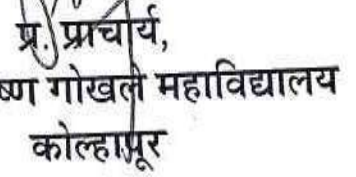 प्र. प्राचार्य,
ष्ण गोखले महाविद्यालय
कोल्हापूर